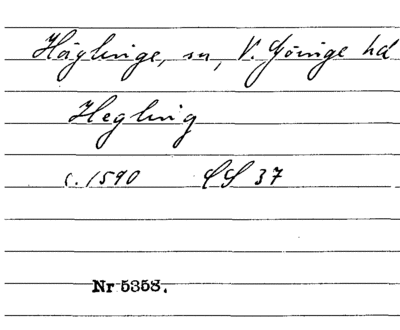 Häglinge, sn, V. Göinge hd
Hegling
c. 1590 CS 37
Nr 5358.